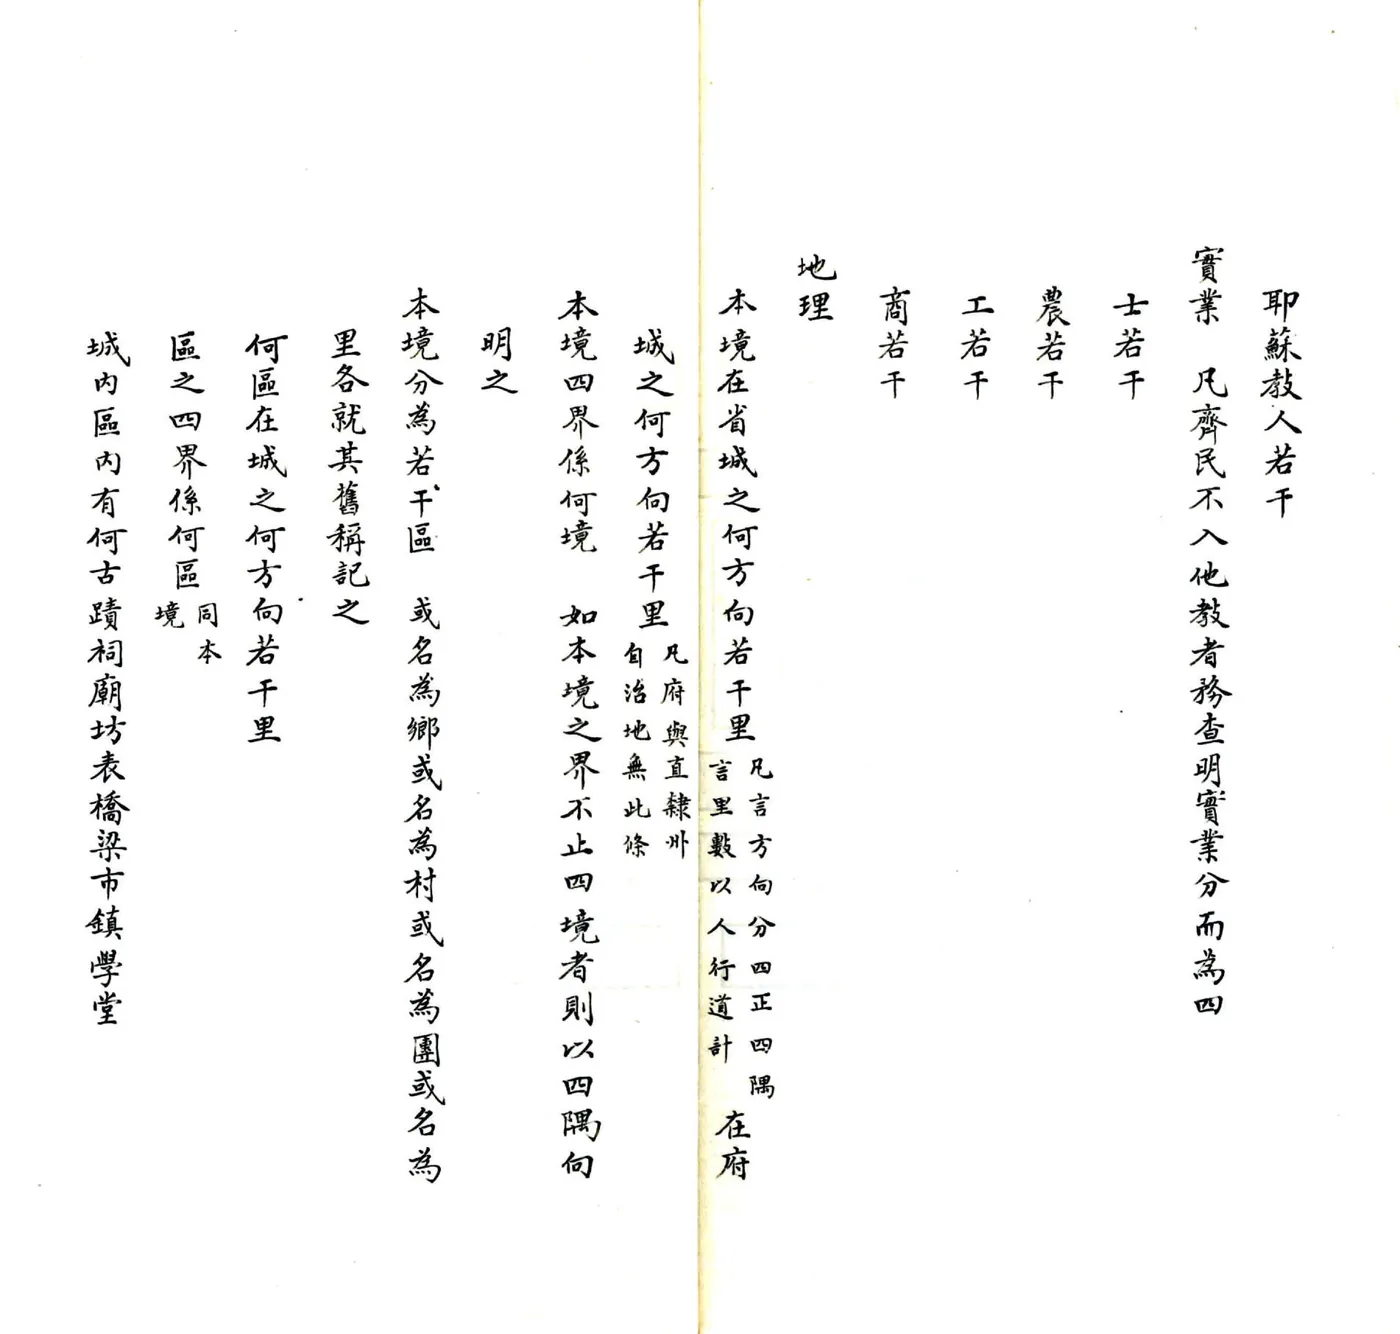 耶蘇教人若干
實業　凡齊民不入他教者務查明實業分而為四
士若干
農若干
工若干
商若干
地理
本境在省城之何方向若干里
凡言方向分四正四隅
言里數以人行道計
在府
城之何方向若干里
凡府與直隸州
自治地無此條
本境四界係何境　如本境之界不止四境者則以四隅向
明之
本境分為若干區　或名為鄉或名為村或名為團或名為
里各就其舊稱記之
何區在城之何方向若干里
區之四界係何區
同本
境
城內區內有何古蹟祠廟坊表橋梁市鎮學堂